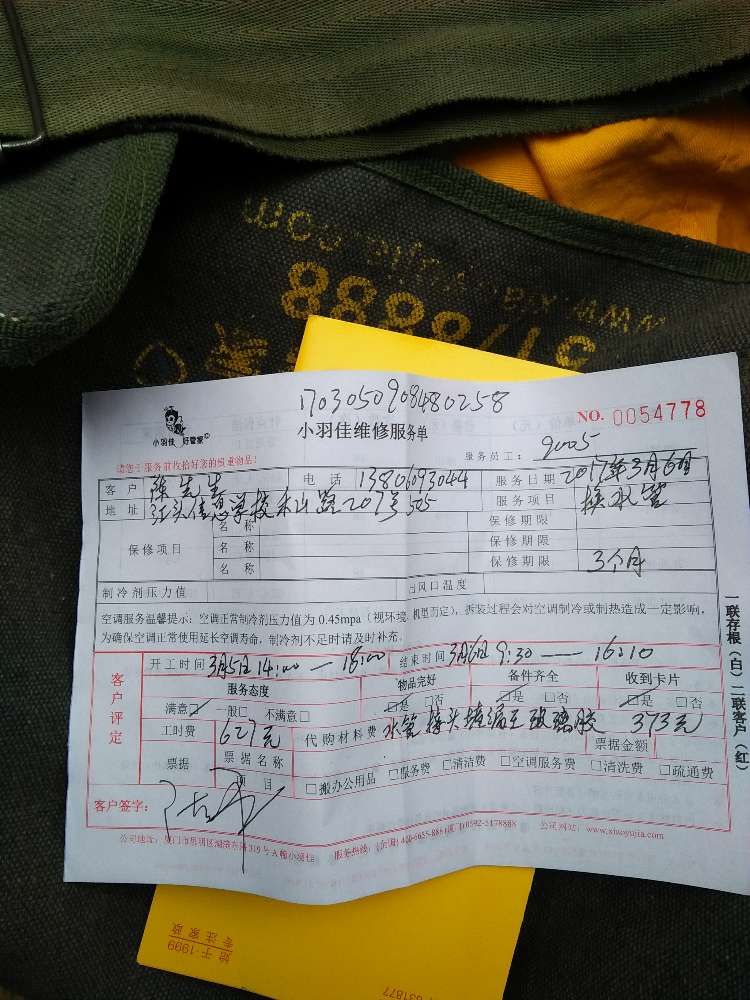 WWW.XIAOYUJIA.COM
8888/18
1703050908480258
小羽佳 好管家
小羽佳维修服务单
NO. 0054778
请您于服务前收拾好您的贵重物品!
服务员工: 9005
客户 陈先生 电话 13806093044 服务日期 2017年3月6日
地址 江头信息学校禾山路207号505 服务项目 换水管
保修项目
名称 保修期限
名称 保修期限
名称 保修期限 3个月
制冷剂压力值 出风口温度
空调服务温馨提示: 空调正常制冷剂压力值为 0.45mpa (视环境、机型而定), 拆装过程会对空调制冷或制热造成一定影响,
为确保空调正常使用延长空调寿命, 制冷剂不足时请及时补充。
客户评定
开工时间 3月5日 14:00 — 18:00 结束时间 3月6日 9:30 — 16:10
服务态度 物品完好 备件齐全 收到卡片
满意☑ 一般□ 不满意□ ☑是 □否 ☑是 □否 ☑是 □否
工时费 627元 代购材料费 水管接头堵漏王玻璃胶 373元
票据 票据名称 票据金额
项目 □搬办公用品 □服务费 □清洁费 □空调服务费 □清洗费 □疏通费
客户签字:
公司地址: 厦门市思明区湖滨东路319号A幢小羽佳 服务热线: (全国) 400-6655-888 (厦门) 0592-5178888 公司网址: www.xiaoyujia.com
一联存根(白) 二联客户(红)
始于·1999
专注家政
631877